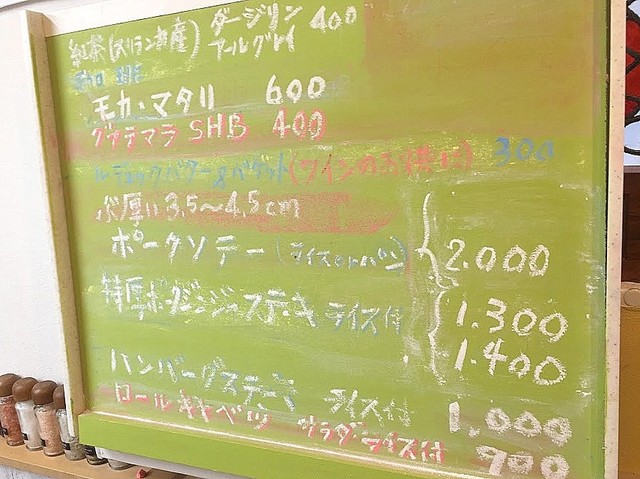 紅茶(スリランカ産) ダージリン 400
アールグレイ
モカ・マタリ 600
グァテマラ SHB 400
ルデュックバター&バケット(ワインのお供に) 300
超厚い 3.5〜4.5cm
ポークソテー (ライスorパン) 2.000
特厚ポークジンジャーステーキ ライス付 1.300
1.400
ハンバーグステーキ ライス付 1.000
ロールキャベツ サラダ・ライス付 900